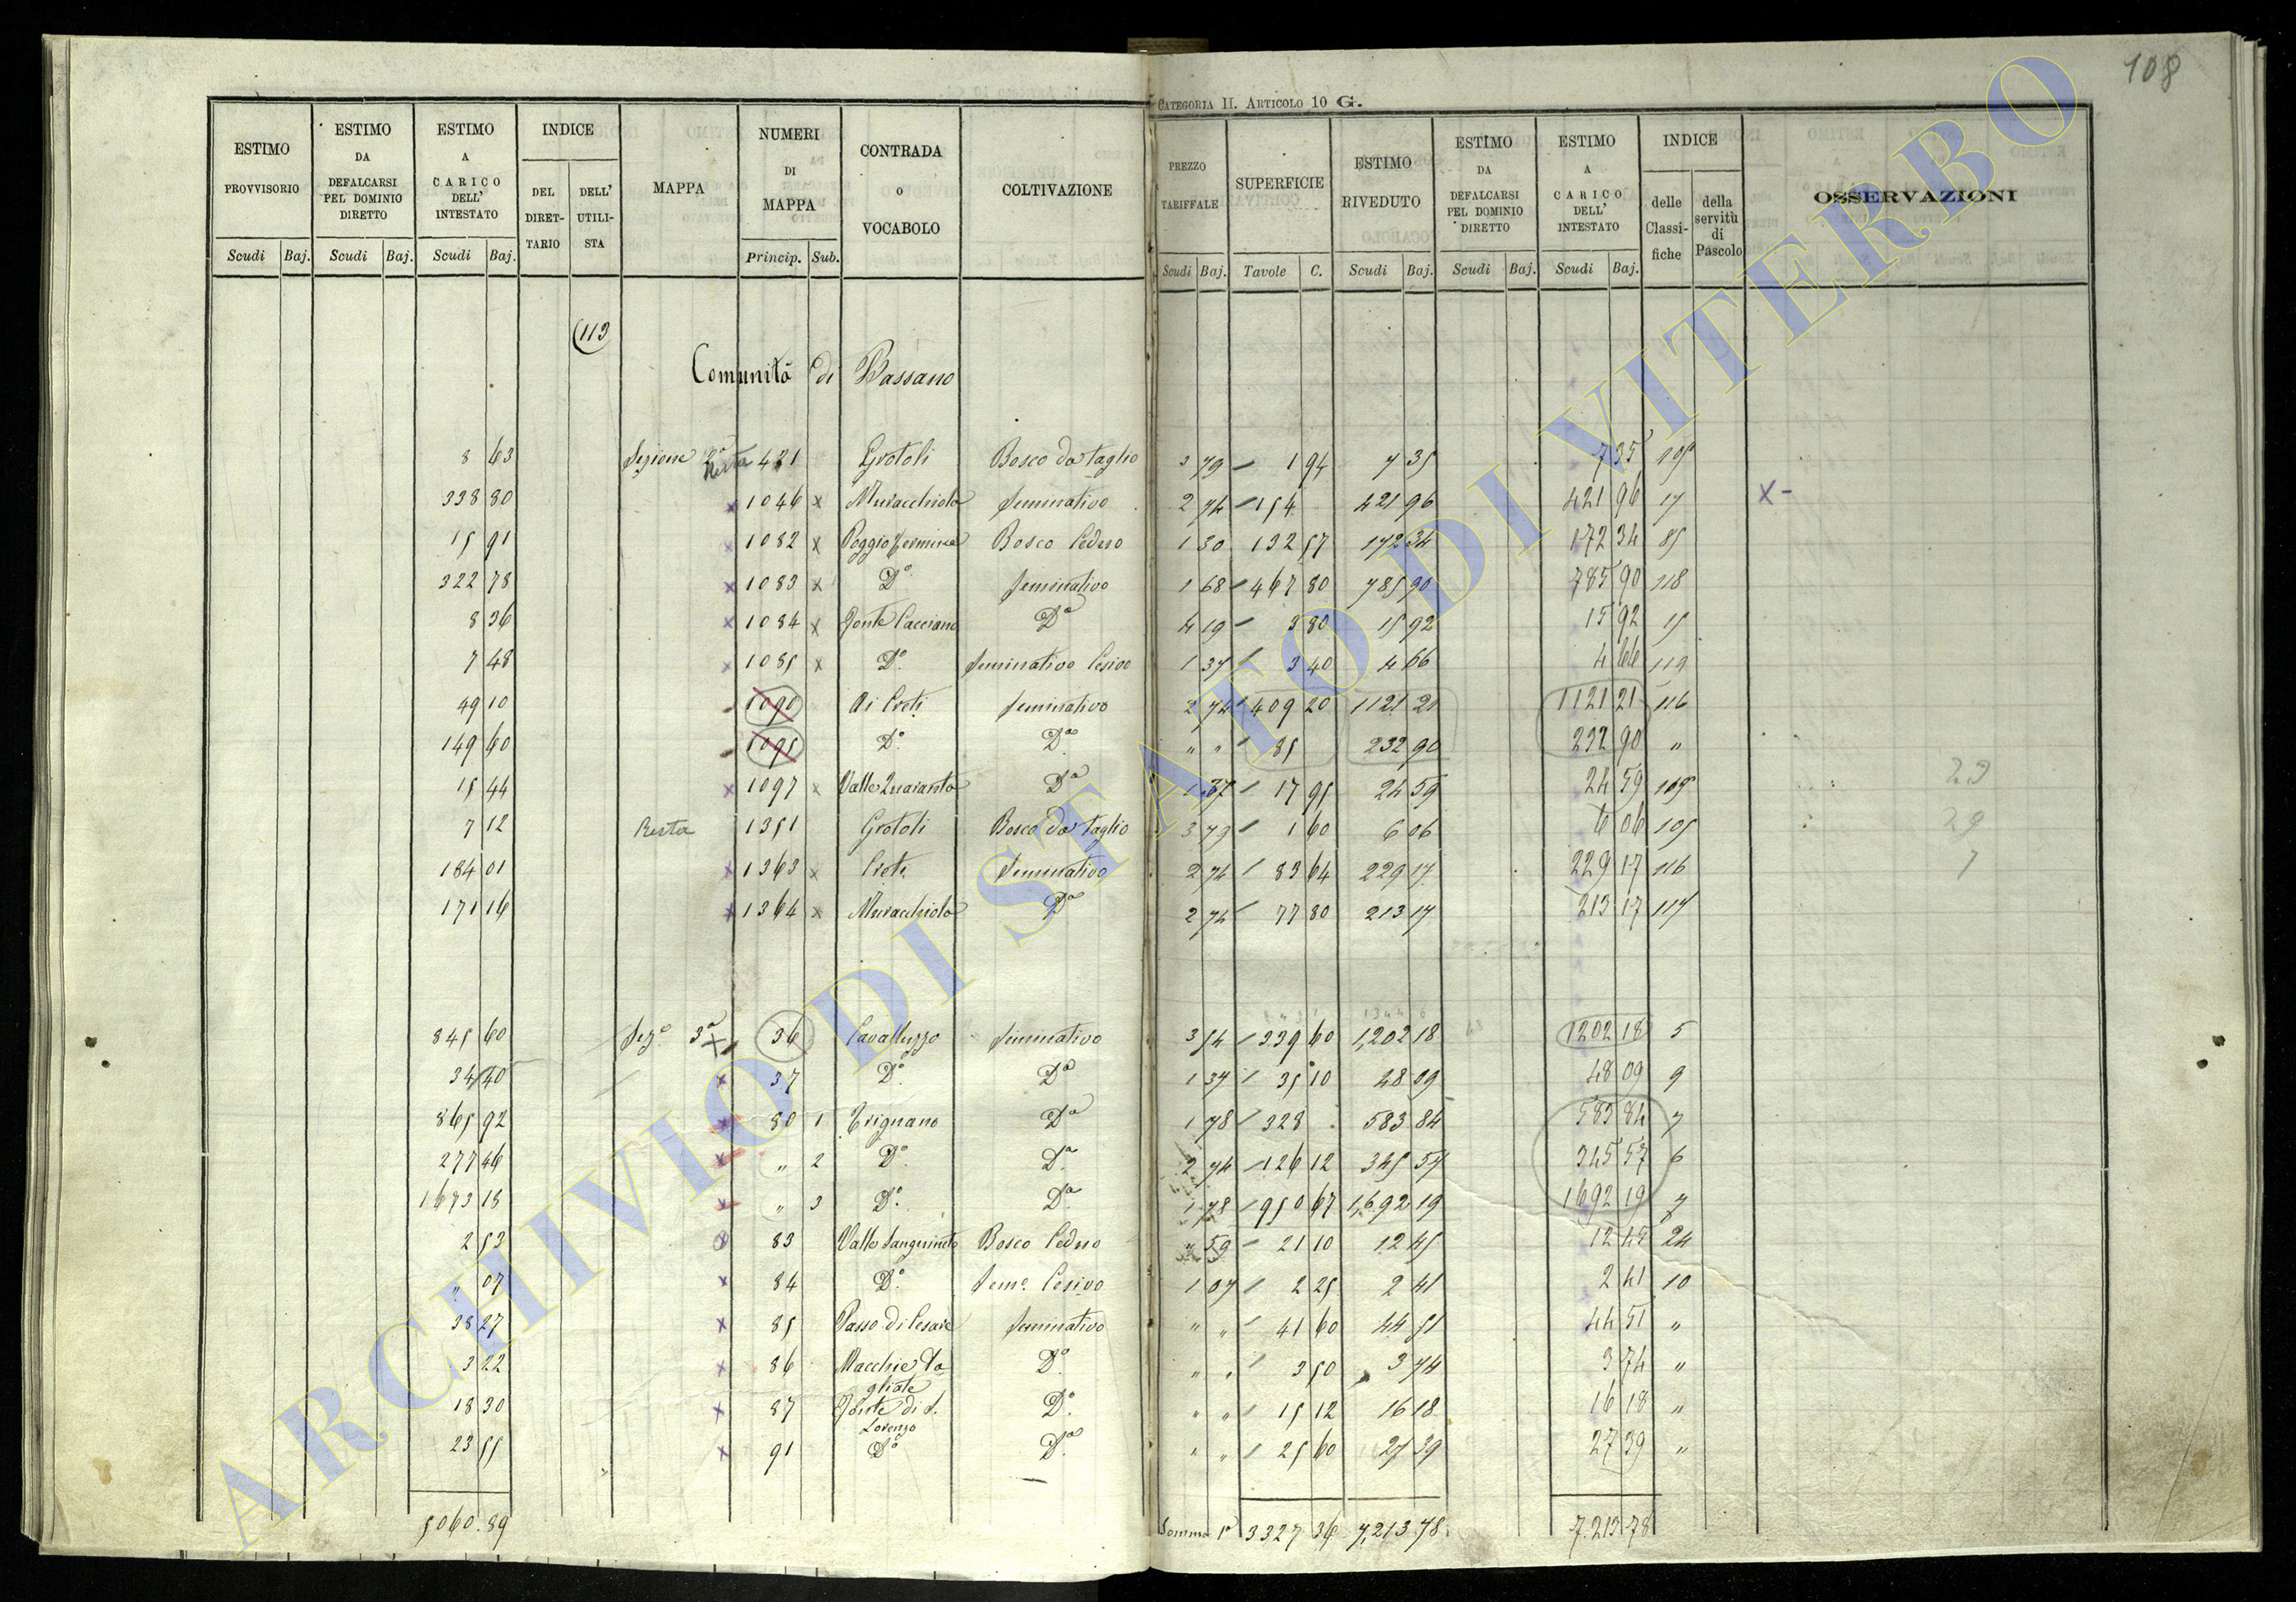 108
CATEGORIA II. ARTICOLO 10 G.
ESTIMO PROVVISORIO Scudi Baj.
ESTIMO DA DEFALCARSI PEL DOMINIO DIRETTO Scudi Baj.
ESTIMO A CARICO DELL' INTESTATO Scudi Baj.
INDICE DEL DIRET-TARIO DELL' UTILI-STA
MAPPA
NUMERI DI MAPPA Princip. Sub.
CONTRADA o VOCABOLO
COLTIVAZIONE
PREZZO TARIFFALE Scudi Baj.
SUPERFICIE Tavole C.
ESTIMO RIVEDUTO Scudi Baj.
ESTIMO DA DEFALCARSI PEL DOMINIO DIRETTO Scudi Baj.
ESTIMO A CARICO DELL' INTESTATO Scudi Baj.
INDICE delle Classi-fiche della servitù di Pascolo
OSSERVAZIONI
(113
Comunità di Bassano
8 63 Sezione 2a Resta 421 Grotoli Bosco da taglio 3 79 1 94 7 35 7 35 105
338 80 x 1046 x Muracchiola Seminativo 2 74 154 421 96 421 96 17 X-
15 91 x 1082 x Bosco Ceduo 1 30 132 57 172 34 172 34 85
322 78 x 1083 x Do Seminativo 1 68 467 80 785 90 785 90 118
8 36 x 1084 x Fonte Cacciano Do 4 19 3 80 15 92 15 92 15
7 48 x 1085 x Do Seminativo Cesivo 1 37 3 40 4 66 4 66 119
49 10 1090 Ai Creti Seminativo 2 74 409 20 1121 21 1121 21 116
149 60 1095 Do Do " " 85 232 90 232 90 "
15 44 x 1097 x Valle Quaranta Do 1 37 17 95 24 59 24 59 105 23
7 12 Resta 1351 Grotoli Bosco da taglio 3 79 1 60 6 06 6 06 105 29
184 01 x 1363 x Creti Seminativo 2 74 83 64 229 17 229 17 116 7
171 16 x 1364 x Muracchiola Do 2 74 77 80 213 17 213 17 117
845 60 Sez.e 3a x 36 Cavalluzzo Seminativo 3 54 339 60 1,202 18 1202 18 5
34 40 x 37 Do Do 1 37 35 10 48 09 48 09 9
865 92 x 80 1 Trignano Do 1 78 328 583 84 583 84 7
277 46 x " 2 Do Do 2 74 126 12 345 57 345 57 6
1673 18 x " 3 Do Do 1 78 950 67 1,692 19 1692 19 7
2 53 x 83 Valle Sanguineto Bosco Ceduo " 59 21 10 12 45 12 45 24
" 07 x 84 Do Seme Cesivo 1 07 2 25 2 41 2 41 10
38 27 x 85 Passo di Cesare Seminativo " " 41 60 44 51 44 51 "
3 22 x 86 Macchie Ta- Do " " 3 50 3 74 3 74 "
gliate
18 30 x 87 Fonte di S. Do " " 15 12 16 18 16 18 "
Lorenzo
23 55 x 91 Do Do " " 25 60 27 39 27 39 "
5060.89 Somma 1a 3327 36 7,213 78 7.213 78
ARCHIVIO DI STATO DI VITERBO